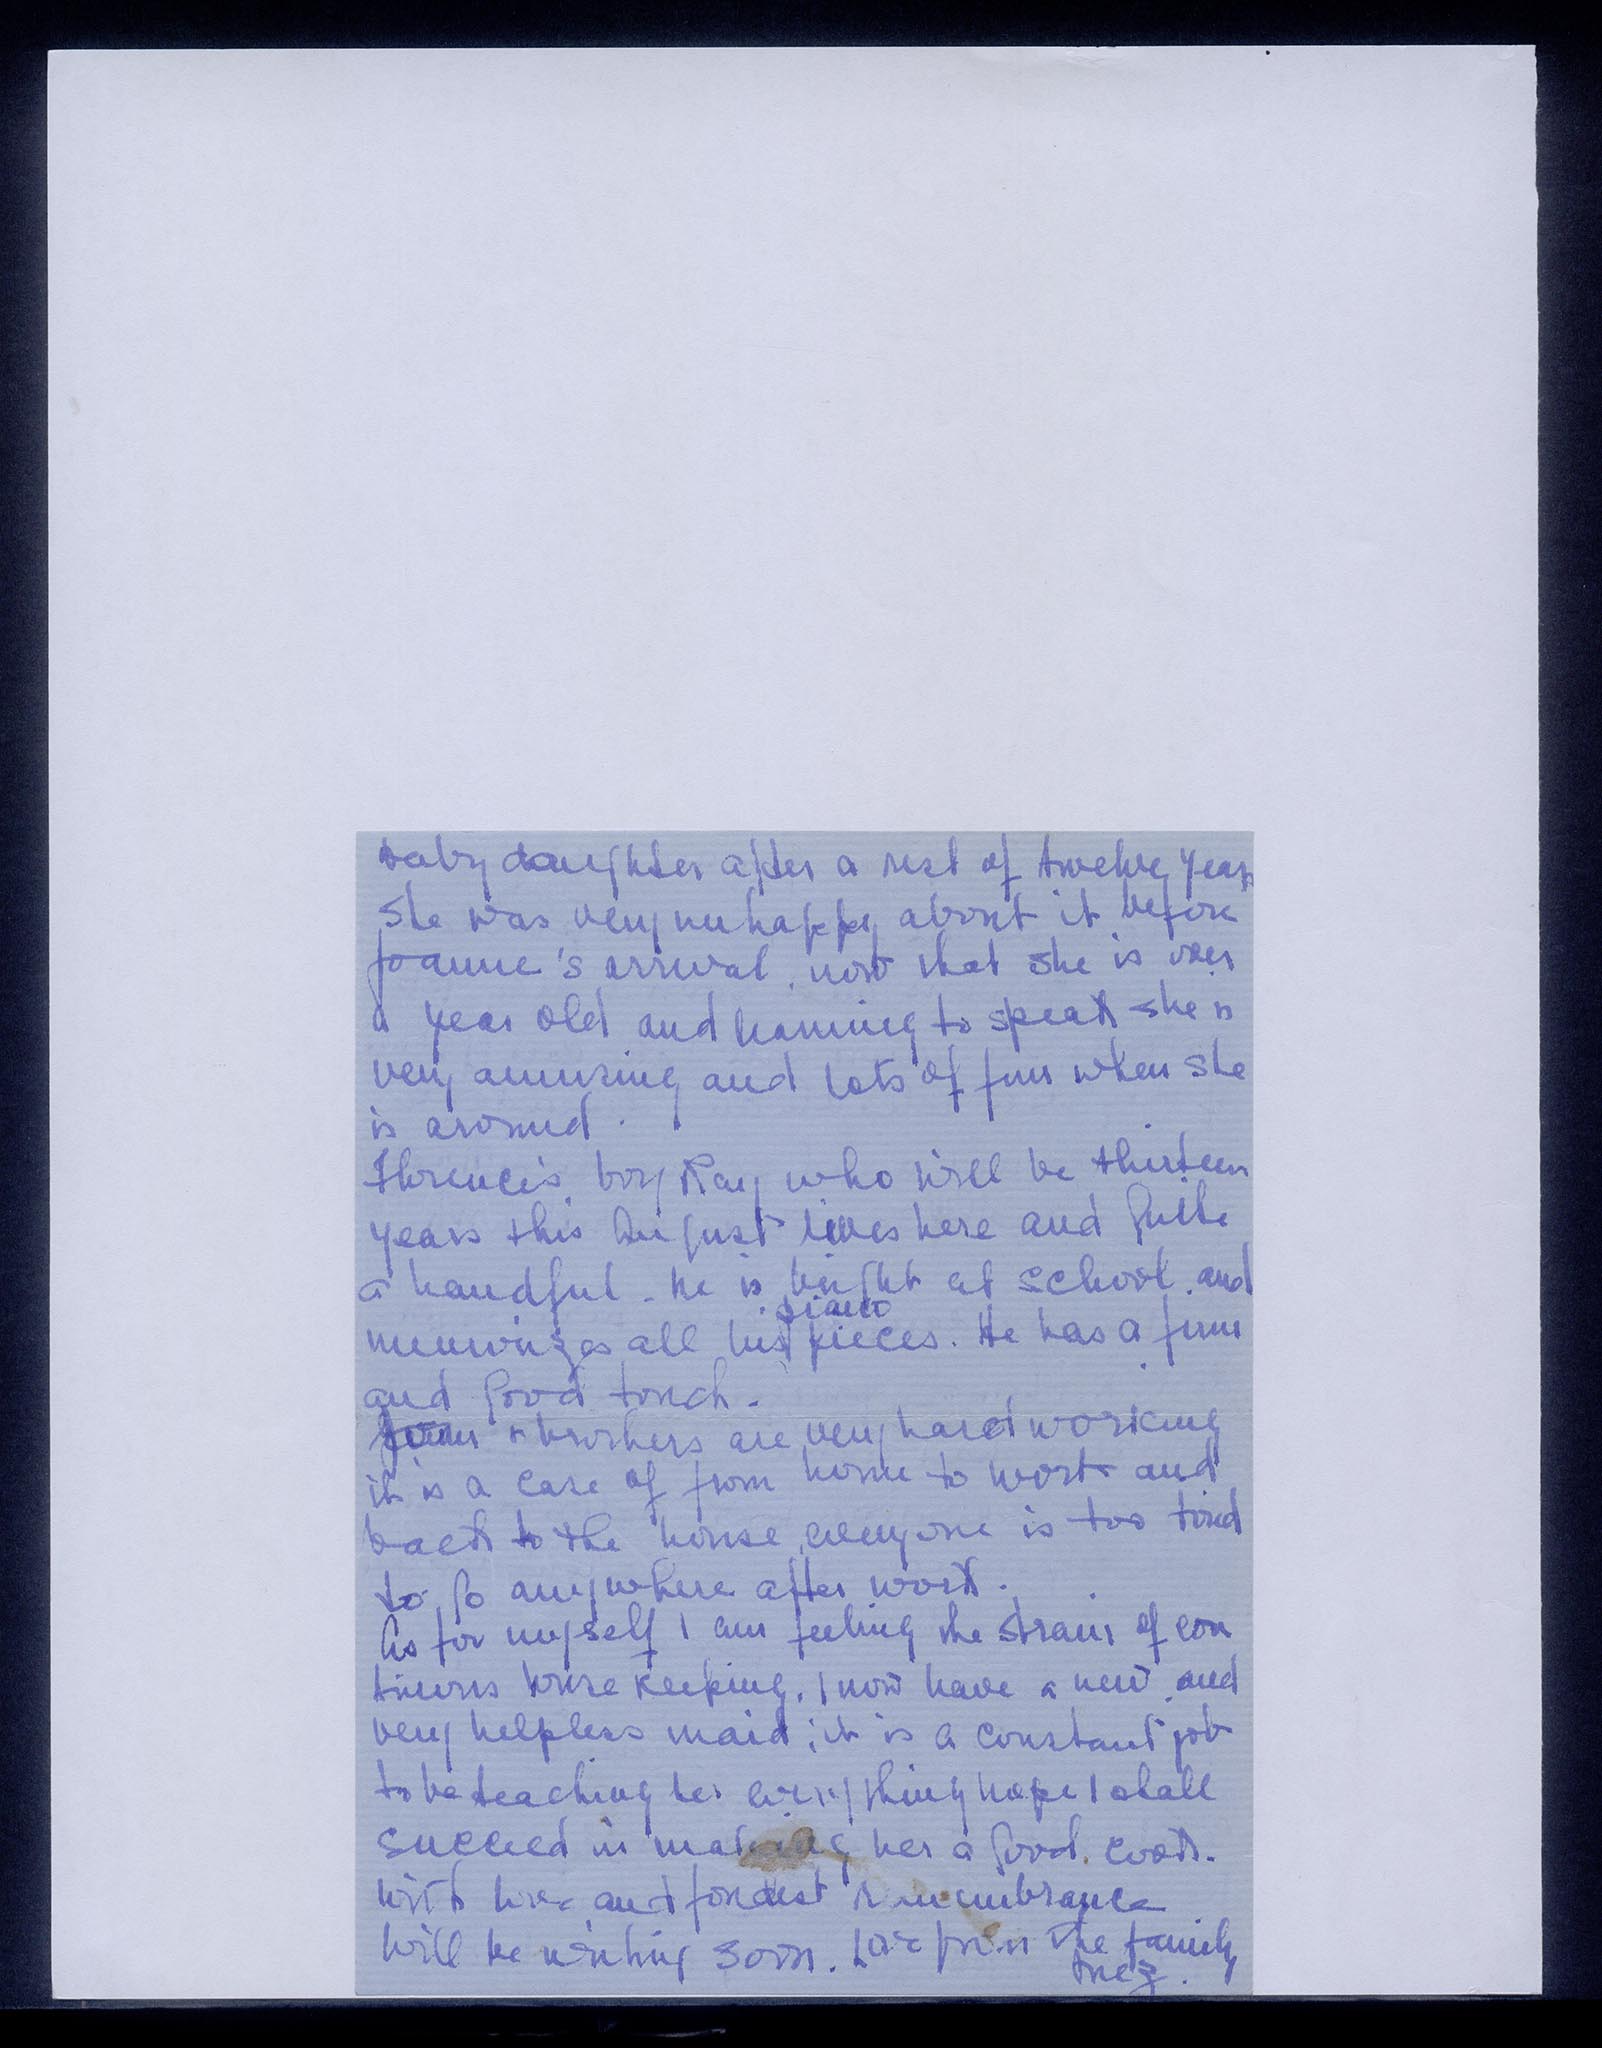 baby daughter after a rest of twelve years
she was very unhappy about it before
Joanne's arrival, now that she is over
a year old and learning to speak she is
very amusing and lots of fun when she
is around.
Florence's boy Ray who will be thirteen
years this August lives here and quite
a handful. He is bright at school, and
memorizes all his piano pieces. He has a firm
and good touch.
brothers are very hard working
it is a case of from home to work and
back to the house, everyone is too tired
to go anywhere after work.
As for myself I am feeling the strain of con
tinuous house keeping. I now have a new and
very helpless maid; it is a constant job
to be teaching her everything hope I shall
succeed in making her a good cook.
With love and fondest remembrance
Will be writing soon. Love from the family
Inez.